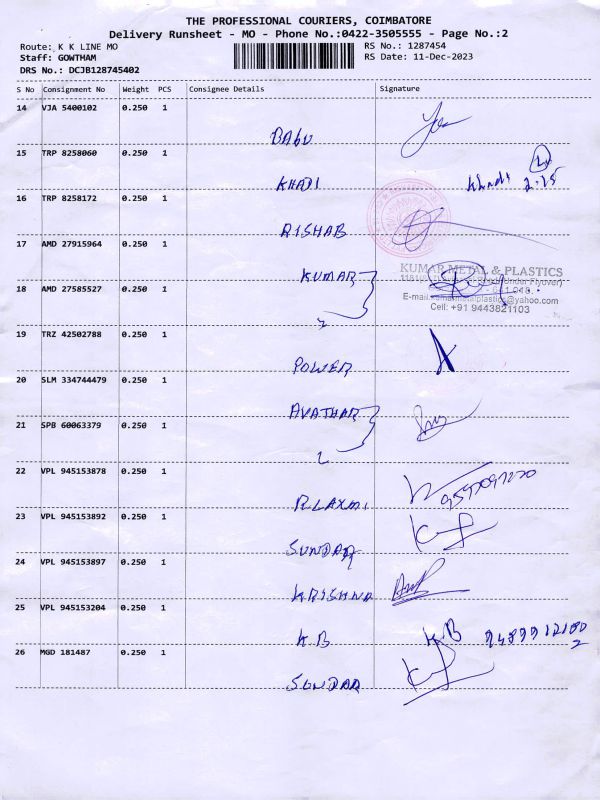 THE PROFESSIONAL COURIERS, COIMBATORE
Delivery Runsheet - MO - Phone No.:0422-3505555 - Page No.:2
Route: K K LINE MO
RS No.: 1287454
Staff: GOWTHAM
RS Date: 11-Dec-2023
DRS No.: DCJB128745402
S No Consignment No Weight PCS Consignee Details Signature
14 VJA 5400102 0.250 1
BABU
15 TRP 8258060 0.250 1
KHADI Khadi 2.15
16 TRP 8258172 0.250 1
RISHAB
17 AMD 27915964 0.250 1
KUMAR
KUMAR METAL & PLASTICS
(Under Flyover)
18 AMD 27585527 0.250 1
E-mail: plastics@yahoo.com
Cell: +91 9443821103
2
19 TRZ 42502788 0.250 1
POWER
20 SLM 334744479 0.250 1
AVATHAR
21 SPB 60063379 0.250 1
2
22 VPL 945153878 0.250 1
R LAXMI
23 VPL 945153892 0.250 1
SUNDAR
24 VPL 945153897 0.250 1
KRISHNA
25 VPL 945153204 0.250 1
K.B K.B
26 MGD 181487 0.250 1
SUNDAR